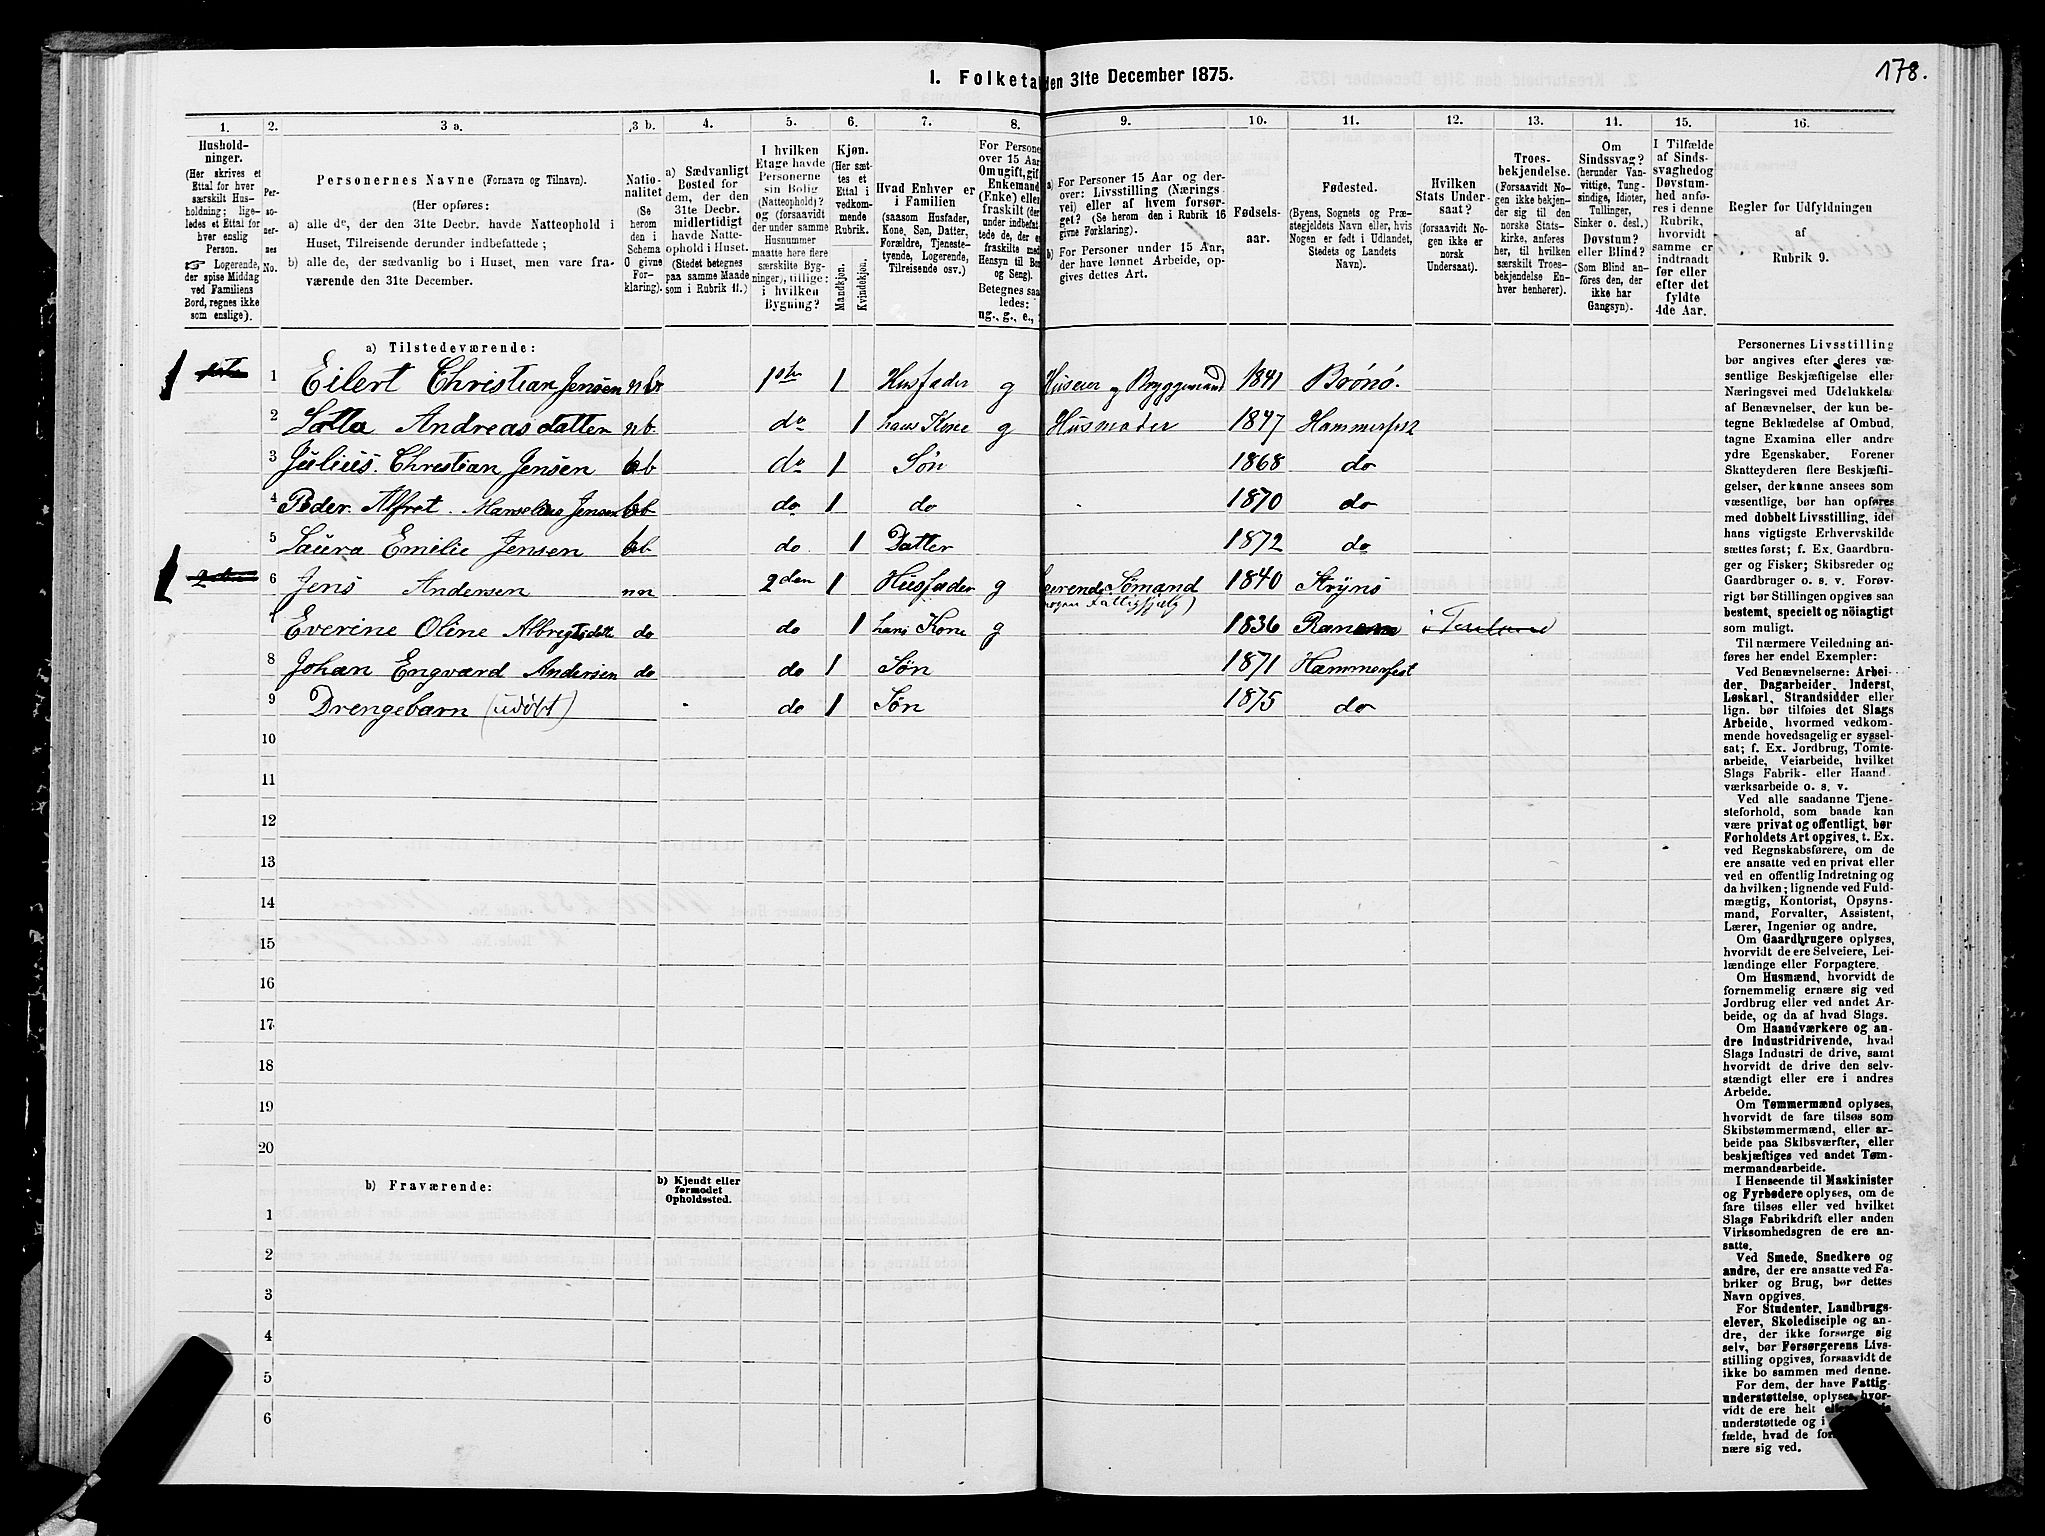 178.
I. Folketal den 31te December 1875.
1. 2. 3 a. 3 b. 4. 5. 6. 7. 8. 9. 10. 11. 12. 13. 11. 15. 16.
Hushold-
ninger.
(Her skrives et
Ettal for hver
særskilt Hus-
holdning; lige-
ledes et Ettal for
hver enslig
Person.
☞ Logerende,
der spise Middag
ved Familiens
Bord, regnes ikke
som enslige).
Per-
so-
ner-
nes
No.
Personernes Navne (Fornavn og Tilnavn).
(Her opføres:
a) alle de, der den 31te Decbr. havde Natteophold i
Huset, Tilreisende derunder indbefattede;
b) alle de, der sædvanlig bo i Huset, men vare fra-
værende den 31te December.
Natio-
nalitet
(Se
herom
den i
Schema
O givne
For-
klaring).
a) Sædvanligt
Bosted for
dem, der den
31te Decbr.
midlertidigt
havde Natte-
ophold i Huset.
(Stedet betegnes
paa samme Maade
som i Rubrik 11.)
I hvilken
Etage havde
Personerne
sin Bolig
(Natteophold)?
og (forsaavidt
der under samme
Husnummer
maatte høre flere
særskilte Byg-
ninger), tillige:
i hvilken
Bygning?
Kjøn.
(Her sæt-
tes et
Ettal i
vedkom-
mende
Rubrik.
Mandkjøn.
Kvindekjøn.
Hvad Enhver er
i Familien
(saasom Husfader,
Kone, Søn, Datter,
Forældre, Tjeneste-
tyende, Logerende,
Tilreisende osv.)
For Persone
over 15 Aar
Om ugift, gif
Enkemand
(Enke) eller
fraskilt (der
under indbefat-
tede de, der er
fraskilte med
Hensyn til Bo
og Seng).
Betegnes saa
ledes:
ug., g., e.,
a) For Personer 15 Aar og der-
over: Livsstilling (Nærings
vei) eller af hvem forsør-
get? (Se herom den i Rubrik 16
givne Forklaring).
b) For Personer under 15 Aar,
der have lønnet Arbeide, op-
gives dettes Art.
Fødsels-
aar.
Fødested.
(Byens, Sognets og Præ-
stegjeldets Navn eller, hvis
Nogen er født i Udlandet,
Stedets og Landets
Navn).
Hvilken
Stats Under-
saat?
(forsaavidt No-
gen ikke er
norsk
Undersaat).
Troes-
bekjendelse.
(Forsaavidt No-
gen ikke bekjen-
der sig til den
norske Stats-
kirke, anføres
her, til hvilken
særskilt Troes-
bekjendelse En-
hver henhører).
Om
Sindssvag?
(herunder Van-
vittige, Tung-
sindige, Idioter,
Tullinger,
Sinker o. desl.)
Døvstum?
eller Blind?
(Som Blind an-
føres den, der
ikke har
Gangsyn).
I Tilfælde
af Sinds-
svaghed og
Døvstum-
hed anfø-
res i denne
Rubrik,
hvorvidt
samme er
indtraadt
før eller
efter det
fyldte
4de Aar.
Regler for Udfyldningen
af
Rubrik 9.
a) Tilstedeværende:
1 Eilert Christian Jensen nb 1ste 1 Husfader g Huseier og Bryggemand 1841 Brønø.
2 Lotta Andreasdatter nb. do 1 hans Kone g Husmoder 1847 Hammerfest
3 Julius. Christian Jensen b do 1 Søn 1868 do
4 Peder. Alfret. Marselius Jensen b do 1 do 1870 do
5 Laura Emilie Jensen b do 1 Datter 1872 do
6 Jens Andersen nn 2den 1 Husfader g Sømand 1840 Stryns
(nogen Fattighjælp)
7 Everine Oline Albregtsdatt do do 1 hans Kone g 1836 Ranen
8 Johan Engvard Andersen do do 1 Søn 1871 Hammerfest
9 Drengebarn (udøbt) do 1 Søn 1875 do
10
11
12
13
14
15
16
17
18
19
20
b) Fraværende:
b) Kjendt eller
formodet
Opholdssted.
1
2
3
4
5
6
Personernes Livsstilling
bør angives efter deres væ-
sentlige Beskjæftigelse eller
Næringsvei med Udelukkelse
af Benævnelser, der kun be-
tegne Beklædelse af Ombud,
tagne Examina eller andre
ydre Egenskaber. Forener
Skatteyderen flere Beskjæfti-
gelser, der kunne ansees som
væsentlige, bør han opføres
med dobbelt Livsstilling, idet
hans vigtigste Erhvervskilde
sættes først; f. Ex. Gaardbru-
ger og Fisker; Skibsreder og
Gaardbruger o. s. v. Forøv-
rigt bør Stillingen opgives saa
bestemt, specielt og nøiagtigt
som muligt.
Til nærmere Veiledning an-
føres her endel Exempler:
Ved Benævnelserne: Arbei-
der, Dagarbeider, Inderst,
Løskarl, Strandsidder eller
lign. bør tilføies det Slags
Arbeide, hvormed vedkom-
mende hovedsagelig er syssel-
sat; f. Ex. Jordbrug, Tomte-
arbeide, Veiarbeide, hvilket
Slags Fabrik- eller Haand-
værksarbeide o. s. v.
Ved alle saadanne Tjene-
steforhold, som baade kan
være privat og offentligt, bør
Forholdets Art opgives, t. Ex.
ved Regnskabsførere, om de
ere ansatte ved en privat eller
ved en offentlig Indretning og
da hvilken; lignende ved Fuld-
mægtig, Kontorist, Opsyns-
mand, Forvalter, Assistent,
Lærer, Ingeniør og andre.
Om Gaardbrugere oplyses,
hvorvidt de ere Selveiere, Lei-
lændinge eller Forpagtere.
Om Husmænd, hvorvidt de
fornemmelig ernære sig ved
Jordbrug eller ved andet Ar-
beide, og da af hvad Slags.
Om Haandværkere og an-
dre Industridrivende, hvad
Slags Industri de drive, samt
hvorvidt de drive den selv-
stændigt eller ere i andres
Arbeide.
Om Tømmermænd oplyses,
hvorvidt de fare tilsøs som
Skibstømmermænd, eller ar-
beide paa Skibsværfter, eller
beskjæftiges ved andet Tøm-
mermandsarbeide.
I Henseende til Maskinister
og Fyrbødere oplyses, om de
fare tilsøs eller ved hvilket
Slags Fabrikdrift eller anden
Virksomhedsgren de ere an-
satte.
Ved Smede, Snedkere og
andre, der ere ansatte ved Fa-
briker og Brug, bør dettes
Navn opgives.
For Studenter, Landbrugs-
elever, Skoledisciple og an-
dre, der ikke forsørge sig
selv, bør Forsørgerens Livs-
stilling opgives, forsaavidt de
ikke bo sammen med denne.
For dem, der have Fattig-
understøttelse, oplyses, hvor-
vidt de ere helt
understøttede og i
fælde, hvad de for
nære sig ved.